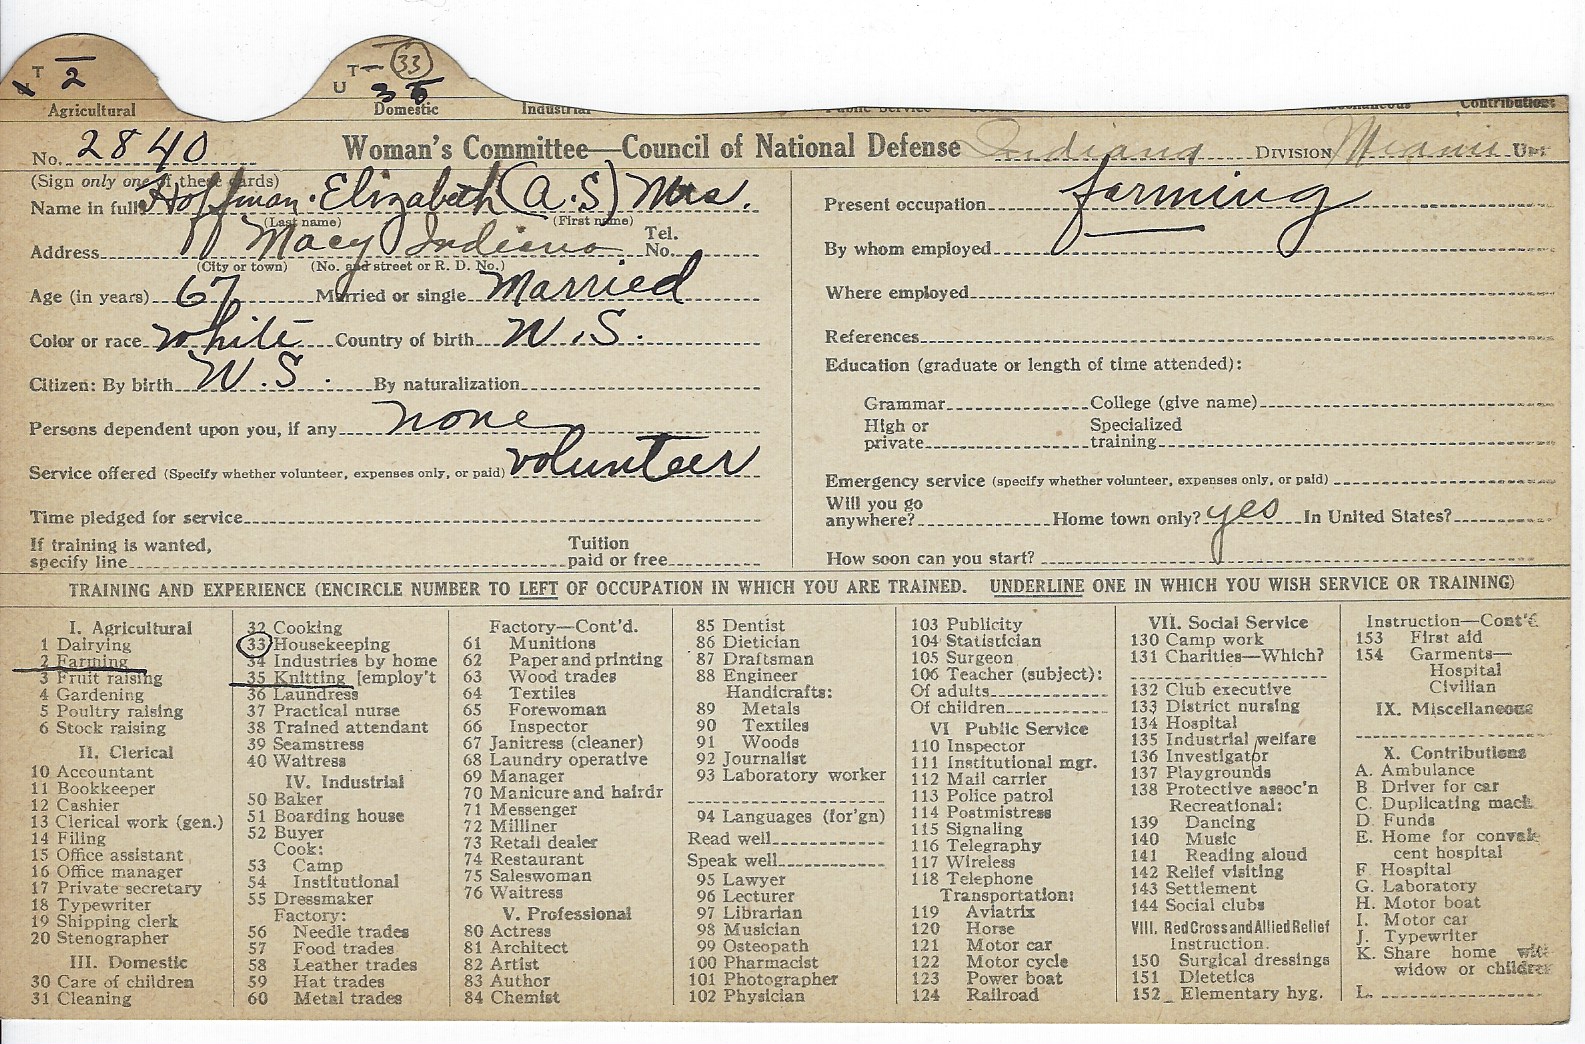 T 2
T 33
U 35
Agricultural Domestic Industrial Public Service Miscellaneous Contributions
No. 2840 Woman's Committee—Council of National Defense Indiana DIVISION Miami UNIT
(Sign only one of these cards)
Name in full Hoffman. Elizabeth (A.S) Mrs.
(Last name) (First name)
Address Macy Indiana Tel. No.
(City or town) (No. and street or R. D. No.)
Age (in years) 67 Married or single Married
Color or race white Country of birth U.S.
Citizen: By birth U.S. By naturalization
Persons dependent upon you, if any none
Service offered (Specify whether volunteer, expenses only, or paid) volunteer
Time pledged for service
If training is wanted, specify line Tuition paid or free
Present occupation farming
By whom employed
Where employed
References
Education (graduate or length of time attended):
Grammar College (give name)
High or private Specialized training
Emergency service (specify whether volunteer, expenses only, or paid)
Will you go anywhere? Home town only? yes In United States?
How soon can you start?
TRAINING AND EXPERIENCE (ENCIRCLE NUMBER TO LEFT OF OCCUPATION IN WHICH YOU ARE TRAINED. UNDERLINE ONE IN WHICH YOU WISH SERVICE OR TRAINING)
I. Agricultural
1 Dairying
2 Farming
3 Fruit raising
4 Gardening
5 Poultry raising
6 Stock raising
II. Clerical
10 Accountant
11 Bookkeeper
12 Cashier
13 Clerical work (gen.)
14 Filing
15 Office assistant
16 Office manager
17 Private secretary
18 Typewriter
19 Shipping clerk
20 Stenographer
III. Domestic
30 Care of children
31 Cleaning
32 Cooking
33 Housekeeping
34 Industries by home
35 Knitting [employ't
36 Laundress
37 Practical nurse
38 Trained attendant
39 Seamstress
40 Waitress
IV. Industrial
50 Baker
51 Boarding house
52 Buyer
Cook:
53 Camp
54 Institutional
55 Dressmaker
Factory:
56 Needle trades
57 Food trades
58 Leather trades
59 Hat trades
60 Metal trades
Factory—Cont'd.
61 Munitions
62 Paper and printing
63 Wood trades
64 Textiles
65 Forewoman
66 Inspector
67 Janitress (cleaner)
68 Laundry operative
69 Manager
70 Manicure and hairdr
71 Messenger
72 Milliner
73 Retail dealer
74 Restaurant
75 Saleswoman
76 Waitress
V. Professional
80 Actress
81 Architect
82 Artist
83 Author
84 Chemist
85 Dentist
86 Dietician
87 Draftsman
88 Engineer
Handicrafts:
89 Metals
90 Textiles
91 Woods
92 Journalist
93 Laboratory worker
94 Languages (for'gn)
Read well
Speak well
95 Lawyer
96 Lecturer
97 Librarian
98 Musician
99 Osteopath
100 Pharmacist
101 Photographer
102 Physician
103 Publicity
104 Statistician
105 Surgeon
106 Teacher (subject):
Of adults
Of children
VI Public Service
110 Inspector
111 Institutional mgr.
112 Mail carrier
113 Police patrol
114 Postmistress
115 Signaling
116 Telegraphy
117 Wireless
118 Telephone
Transportation:
119 Aviatrix
120 Horse
121 Motor car
122 Motor cycle
123 Power boat
124 Railroad
VII. Social Service
130 Camp work
131 Charities—Which?
132 Club executive
133 District nursing
134 Hospital
135 Industrial welfare
136 Investigator
137 Playgrounds
138 Protective assoc'n
Recreational:
139 Dancing
140 Music
141 Reading aloud
142 Relief visiting
143 Settlement
144 Social clubs
VIII. Red Cross and Allied Relief
Instruction.
150 Surgical dressings
151 Dietetics
152 Elementary hyg.
Instruction—Cont'd
153 First aid
154 Garments—
Hospital
Civilian
IX. Miscellaneous
X. Contributions
A. Ambulance
B Driver for car
C. Duplicating mach
D. Funds
E. Home for convales
cent hospital
F Hospital
G. Laboratory
H. Motor boat
I. Motor car
J. Typewriter
K. Share home with
widow or children
L.